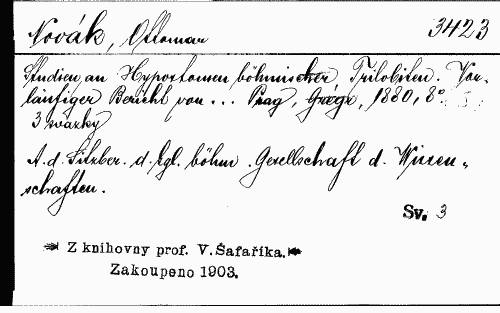 Novák, Ottomar 3423
Studien an Hypostomen böhmischer Trilobiten. Vor-
läufiger Bericht von ... Prag, Grégr, 1880, 8°.
3 svazky
A. d. Sitzber. d. kgl. böhm. Gesellschaft d. Wissen-
schaften.
Sv. 3
Z knihovny prof. V. Šafaříka.
Zakoupeno 1903.